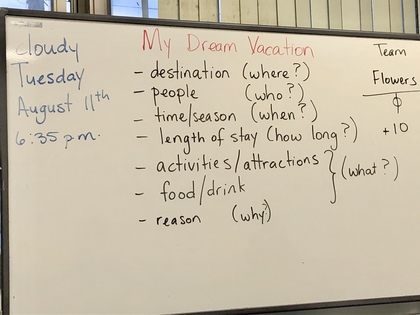 Cloudy
Tuesday
August 11th
6:35 p.m.
My Dream Vacation
- destination (where?)
- people (who?)
- time/season (when?)
- length of stay (how long?)
- activities/attractions
- food/drink
(what?)
- reason (why?)
Team
Flowers
+10